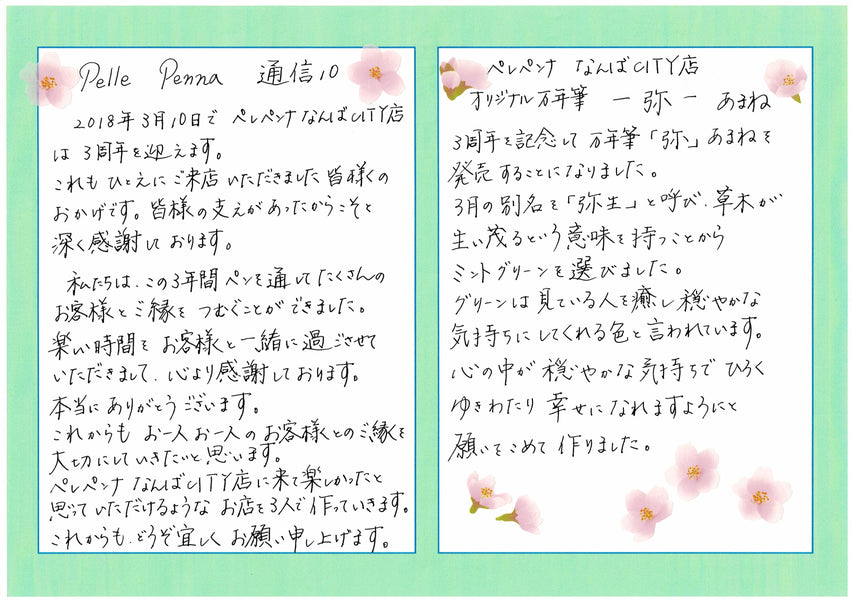 Pelle Penna 通信10
2018年3月10日で ペレペンナ なんばCITY店
は 3周年を迎えます。
これも ひとえに ご来店いただきました 皆様の
おかげです。皆様の支えがあったからこそと
深く感謝しております。
私たちは、この3年間ペンを通してたくさんの
お客様とご縁を つむぐことができました。
楽しい時間を お客様と一緒に過ごさせて
いただきまして、心より感謝しております。
本当に ありがとうございます。
これからも お一人お一人の お客様とのご縁を
大切にしていきたいと思います。
ペレペンナ なんばCITY店に来て楽しかったと
思っていただけるような お店を3人で作っていきます。
これからも、どうぞ宜しく お願い申し上げます。
ペレペンナ なんばCITY店
オリジナル万年筆 ー 弥 ー あまね
3周年を記念して 万年筆「弥」あまねを
発売することになりました。
3月の別名を「弥生」と呼び、草木が
生い茂るという意味を持つことから
ミントグリーンを選びました。
グリーンは見ている人を癒し穏やかな
気持ちにしてくれる色と言われています。
心の中が 穏やかな気持ちで ひろく
ゆきわたり 幸せになれますようにと
願いをこめて 作りました。